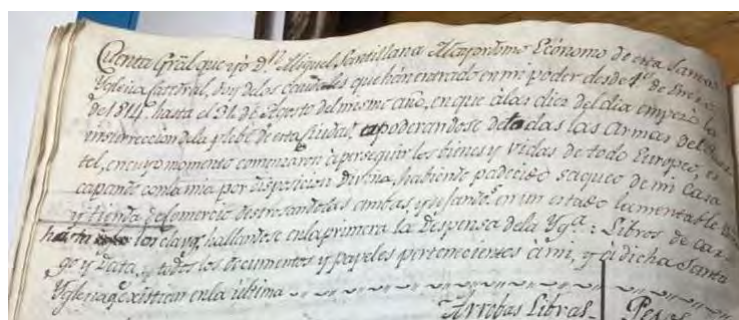 Cuenta Gral que yo Dn. Miguel Santillana Mayordomo Ecónomo de esta Santa
Yglesia Catedral, doy delos caudales que hán entrado en mi poder desde 1º de Enero
de 1814. hasta el 31 de Agosto del mismo año, en que álas diez del dia empezó la
insurreccion dela plebe de esta Ciudad, apoderandose de todas las armas del
tel, en cuyo momento comenzaron à perseguir los bienes y vidas de todo Europeo, es
capando con la mia por disposicion Divina, habiendo padecido saqueo de mi Casa
y tienda de Comercio destrozandolas ambas y dejandos. en un estado lamentable
hasta los clavos, hallandose enla primera la despensa dela Yga.: Libros de car
go y Data, y todos los documentos y papeles pertenecientes à mi, y à dicha Santa
Yglesia qe. existian enla ultima
Arrobas Libras Pesos